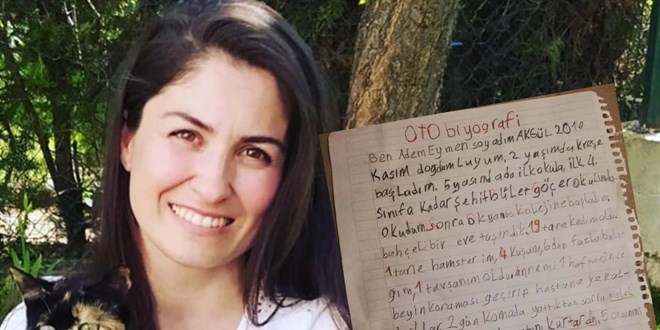 OTO biyografi
Ben Adem Eymen soyadım AKGÜL 2010
Kasım doğumluyum, 2 yaşımda kreşe
başladım. 5 yaşında da ilkokula, ilk 4.
sınıfa kadar şehit bilgler göçer okulunda
okudum sonra okyanus kolejine başladım
bahçeli bir eve taşındık 19 tane kedim oldu
1 tane hamsterim, 4 kuşum, 6 dan fazla balı-
ğım, 1 tavşanım oldu annem 1 hafta önce
beyin kanaması geçirip hastaneye kal-
2 gün komada yattıktan sonra